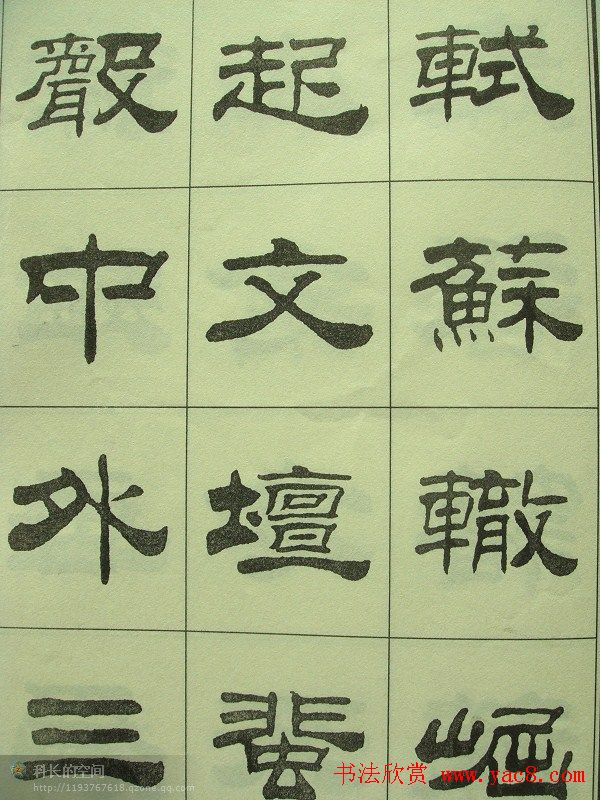 軾蘇轍崛
起文壇蜚
聲中外三
科长的空间
http://1193767618.qzone.qq.com
书法欣赏 www.yac8.com